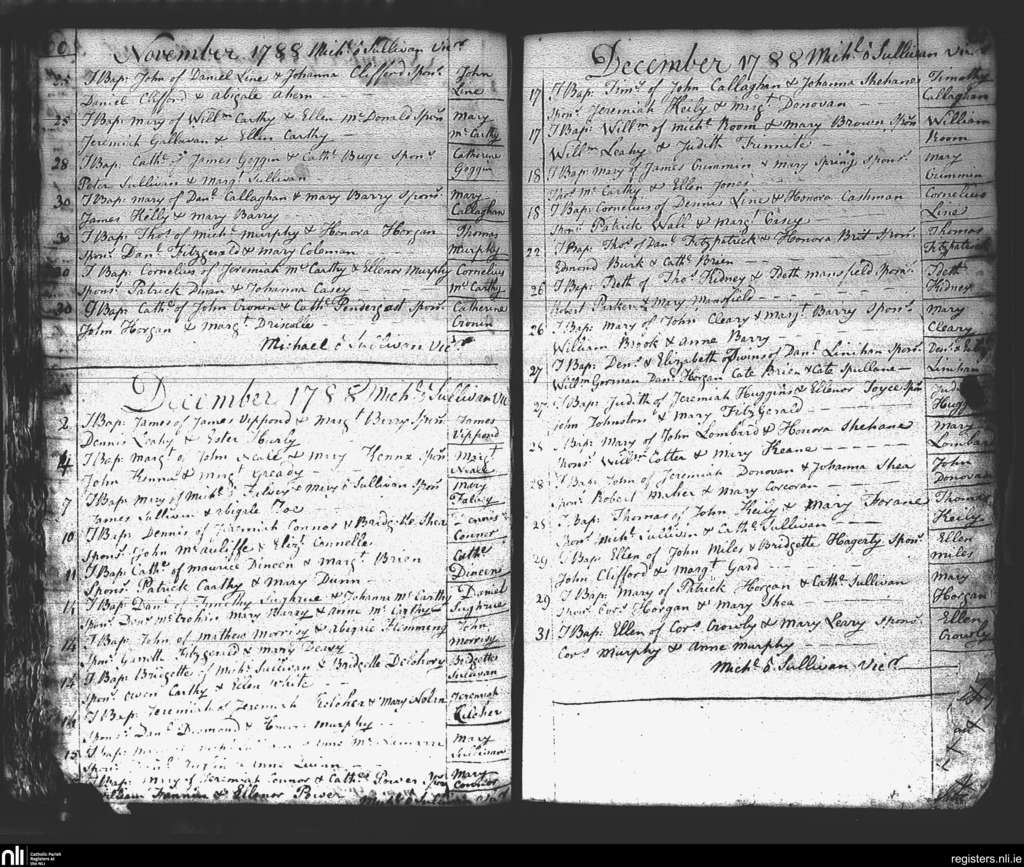 November 1788 Mich.l ó Sullivan Vic.r
25 I Bap: John of Daniel Line & Johanna Clifford Spon.s John
Daniel Clifford & Abigale Ahern Line
25 I Bap: Mary of Will.m Carthy & Ellen McDonald Spon.s Mary
Jeremiah Gallivan & Ellen Carthy McCarthy
28 I Bap: Cath.e of James Goggin & Cath.e Buge Spon.s Catherene
Peter Sullivan & Marg.t Sullivan Goggin
30 I Bap: Mary of Dan.l Callaghan & Mary Barry Spon.s Mary
James Holly & Mary Barry Callaghan
30 I Bap: Tho.s of Mich.l Murphy & Honora Horgan Thomas
Spon.s Dan.l Fitzgerald & Mary Coleman Murphy
30 I Bap: Cornelius of Jeremiah McCarthy & Ellenor Murphy Cornelius
Spon.s Patrick Dunn & Johanna Casey McCarthy
30 I Bap: Cath.e of John Cronen & Cath.e Pendergast Spon.s Catherine
John Horgan & Marg.t Driscole Cronin
Michael ó Sullivan Vic.r
December 1788 Mich.l ó Sullivan Vic
2 I Bap: James of James Vippond & Marg.t Berry Spon.s James
Dennis Leahy & Ester Hurly Vippond
4 I Bap: Marg.t of John Neale & Mary Kenna Spon.s Marg.t
John Kenna & Marg.t Gready Neale
7 I Bap: Mary of Mich.l Falvey & Mary ó Sullivan Spon.s Mary
James Sullivan & Abigale Falvey
10 I Bap: Dennis of Jeremiah Connor & Bridgette Shea Dennis
Spon.s John McAuliffe & Eliz. Connelle Connor
11 I Bap: Cath.e of Maurice Dineen & Marg.t Brien Cath.e
Spon.s Patrick Carthy & Mary Dunn Dineen
I Bap: Dan.l of Timothy Sughrue & Johanna McCarthy Daniel
Spon.s Den.s McCrohin Mary Harry & Anne McCarthy Sughrue
14 I Bap: John of Mathew Morrisy & Abigale Flemming John
Spon.s Garrett Fitzgerald & Mary Morrisy
I Bap: Bridgette of Mich.l Sullivan & Bridgette Delohery Bridgette
Spon.s Owen Carthy & Ellen White Sullivan
I Bap: Jeremiah of Jeremiah Kelcher & Mary Jeremiah
Spon.s Dan.l Desmond & Murphy Kelcher
15 I Bap: Mary
Spon.s Sullivan
I Bap: Mary of Jeremiah Connor & Cath.e Power Spon.s Mary
William & Ellenor Power Connor
December 1788 Mich.l ó Sullivan Vic.r
17 I Bap: Tim.y of John Callaghan & Johanna Shehane Timothy
Spon.s Jeremiah Keily & Marg.t Donovan Callaghan
17 I Bap: Will.m of Mich.l Room & Mary Brown Spon.s William
Will.m Leahy & Judith Room
18 I Bap: Mary of James Crimmin & Mary Spring Spon.s Mary
Tho.s McCarthy & Ellen Jones Crimmin
18 I Bap: Cornelius of Dennis Line & Honora Cashman Cornelius
Spon.s Patrick Wall & Marg.t Casey Line
22 I Bap: Tho.s of Dan.l Fitzpatrick & Honora Spon.s Thomas
Edmond Burk & Cath.e Brien Fitzpatrick
26 I Bap: Beth of Tho.s Kidney & Beth Mansfield Spon.s Beth
Robert Parker & Mary Mansfield Kidney
26 I Bap: Mary of John Cleary & Marg.t Barry Spon.s Mary
William Brook & Anne Barry Cleary
27 I Bap: Den.s & Elizabeth Twins of Dan.l Linihan Spon.s Den.s &
Will.m Gorman Dan.l Horgan Cate Brien & Cate Spullane Linihan
27 I Bap: Judith of Jeremiah Huggins & Ellenor Joyce Spon
John Johnston & Mary Fitzgerald
I Bap: Mary of John Lombard & Honora Shehane Mary
Spon.s Will.m Cotter & Mary Keane
28 I Bap: John of Jeremiah Donovan & Johanna Shea John
Spon.s Robert Maher & Mary Corcoran Donovan
28 I Bap: Thomas of John Keily & Mary Forane Thomas
Spon.s Mich.l Sullivan & Cath.e Sullivan Keily
29 I Bap: Ellen of John Miles & Bridgette Hagerty Spon.s Ellen
John Clifford & Marg.t Gard Miles
29 I Bap: Mary of Patrick Horgan & Cath.e Sullivan Mary
Spon.s Cor.s Horgan & Mary Shea Horgan
31 I Bap: Ellen of Cor.s Crowly & Mary Leary Spon.s Ellen
Cor.s Murphy & Anne Murphy Crowly
Mich.l ó Sullivan Vic.r
nli Catholic Parish Registers at the NLI
registers.nli.ie